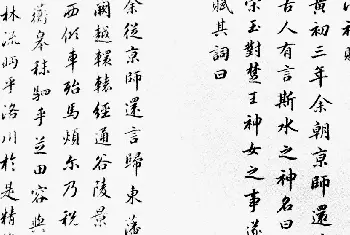 神賦
黃初三年余朝京師還
古人有言斯水之神名曰
宋玉對楚王神女之事遂
賦其詞曰
余從京師還言歸東藩
闕越轘轅經通谷陵景
西傾車殆馬煩尔乃税
蘅皋秣駟乎芝田容與
林流眄乎洛川於是精